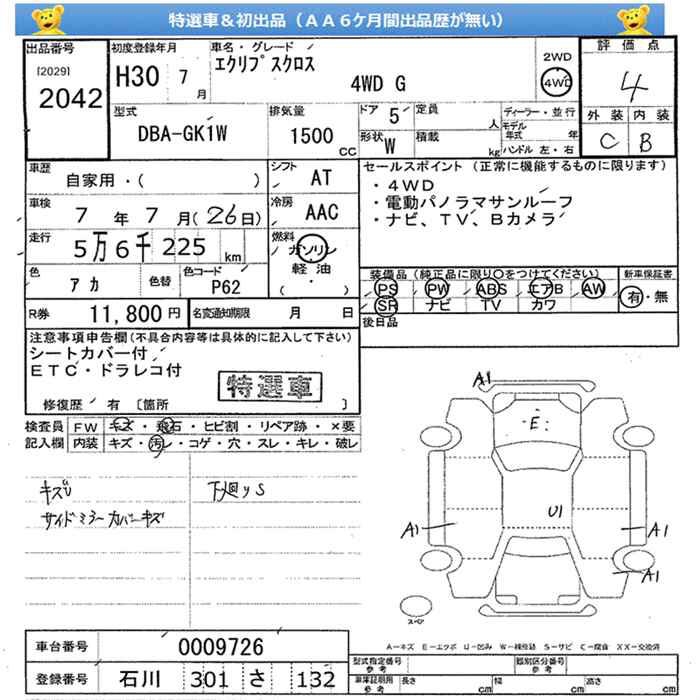 特選車&初出品(AA6ケ月間出品歴が無い)
出品番号 [2029] 2042
初度登録年月 H30 7月
車名・グレード エクリプスクロス 4WD G
2WD 4WD
評価点 4
外装 内装
C B
型式 DBA-GK1W
排気量 1500 CC
ドア 5
形状 W
定員 人
積載 kg
ディーラー・並行
モデル年式 年
ハンドル 左・右
車歴 自家用・( )
シフト AT
車検 7年7月(26日)
冷房 AAC
走行 5万6千225 km
燃料 ガソリン 軽油 ( ・ )
色 アカ 色替
色コード P62
R券 11,800円
名変通知期限 月 日
セールスポイント(正常に機能するものに限ります)
・4WD
・電動パノラマサンルーフ
・ナビ、TV、Bカメラ
装備品(純正品に限り○をつけてください)
PS PW ABS エアB AW
SR ナビ TV カワ
新車保証書 有・無
後日品
注意事項申告欄(不具合内容等は具体的に記入して下さい)
シートカバー付
ETC・ドラレコ付
特選車
修復歴 有 〔箇所 〕
検査員記入欄
FW キズ・飛石・ヒビ割・リペア跡・×要
内装 キズ・汚レ・コゲ・穴・スレ・キレ・破レ
キズU
サイドミラーカバーキズ
下廻りS
A1
E
U1
A1
A1
A1
スペア
A=キズ E=エクボ U=凹み W=補修跡 S=サビ C=腐食 XX=交換済
車台番号 0009726
登録番号 石川 301 さ 132
型式指定番号 参考
類別区分番号 参考
車庫証明用 参考 長さ cm 幅 cm 高さ cm